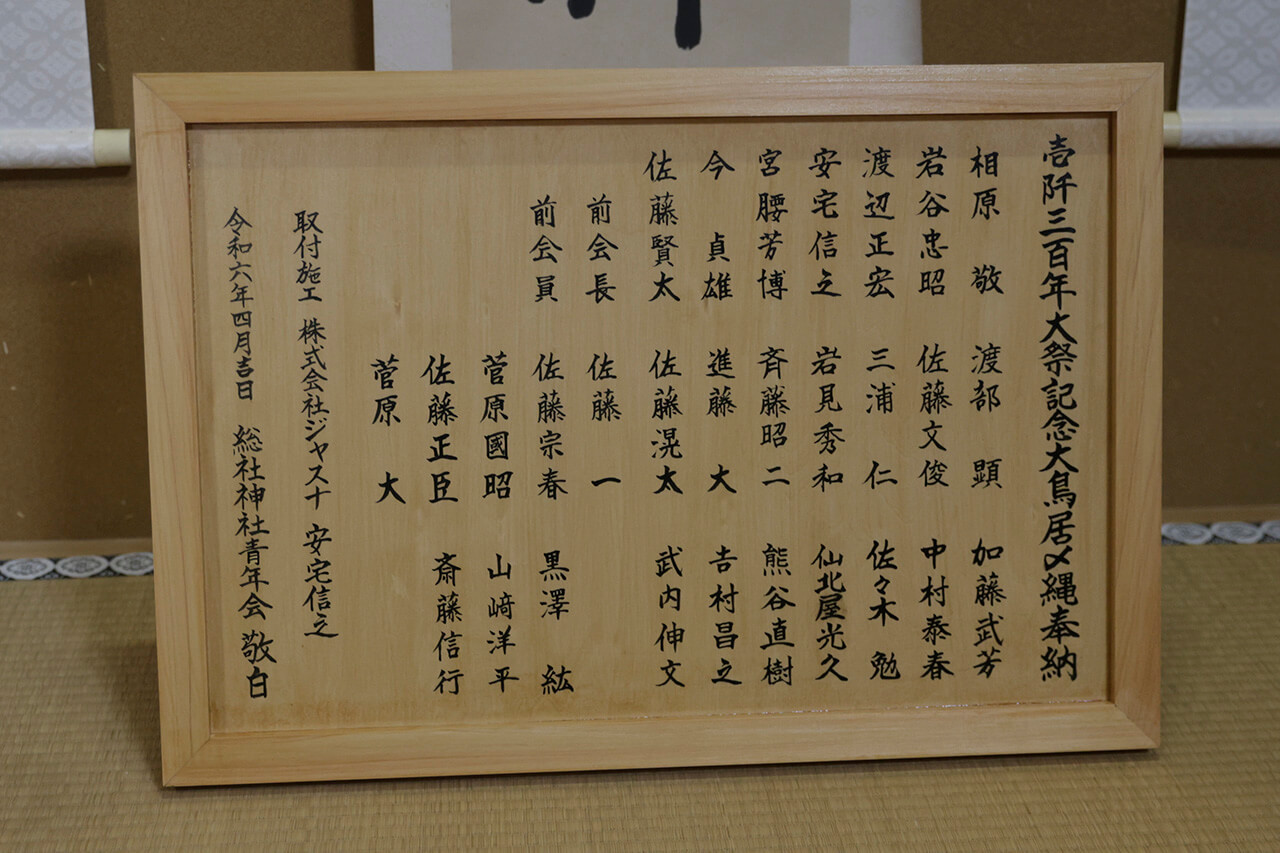 壱阡三百年大祭記念大鳥居〆縄奉納
相原 敬 渡部 顕 加藤武芳
岩谷忠昭 佐藤文俊 中村泰春
渡辺正宏 三浦 仁 佐々木 勉
安宅信之 岩見秀和 仙北屋光久
宮腰芳博 斉藤昭二 熊谷直樹
今 貞雄 進藤 大 吉村昌之
佐藤賢太 佐藤滉太 武内伸文
前会長 佐藤 一
前会員 佐藤宗春 黒澤 紘
菅原國昭 山﨑洋平
佐藤正臣 斎藤信行
菅原 大
取付施工 株式会社ジャスナ 安宅信之
令和六年四月吉日 総社神社青年会 敬白